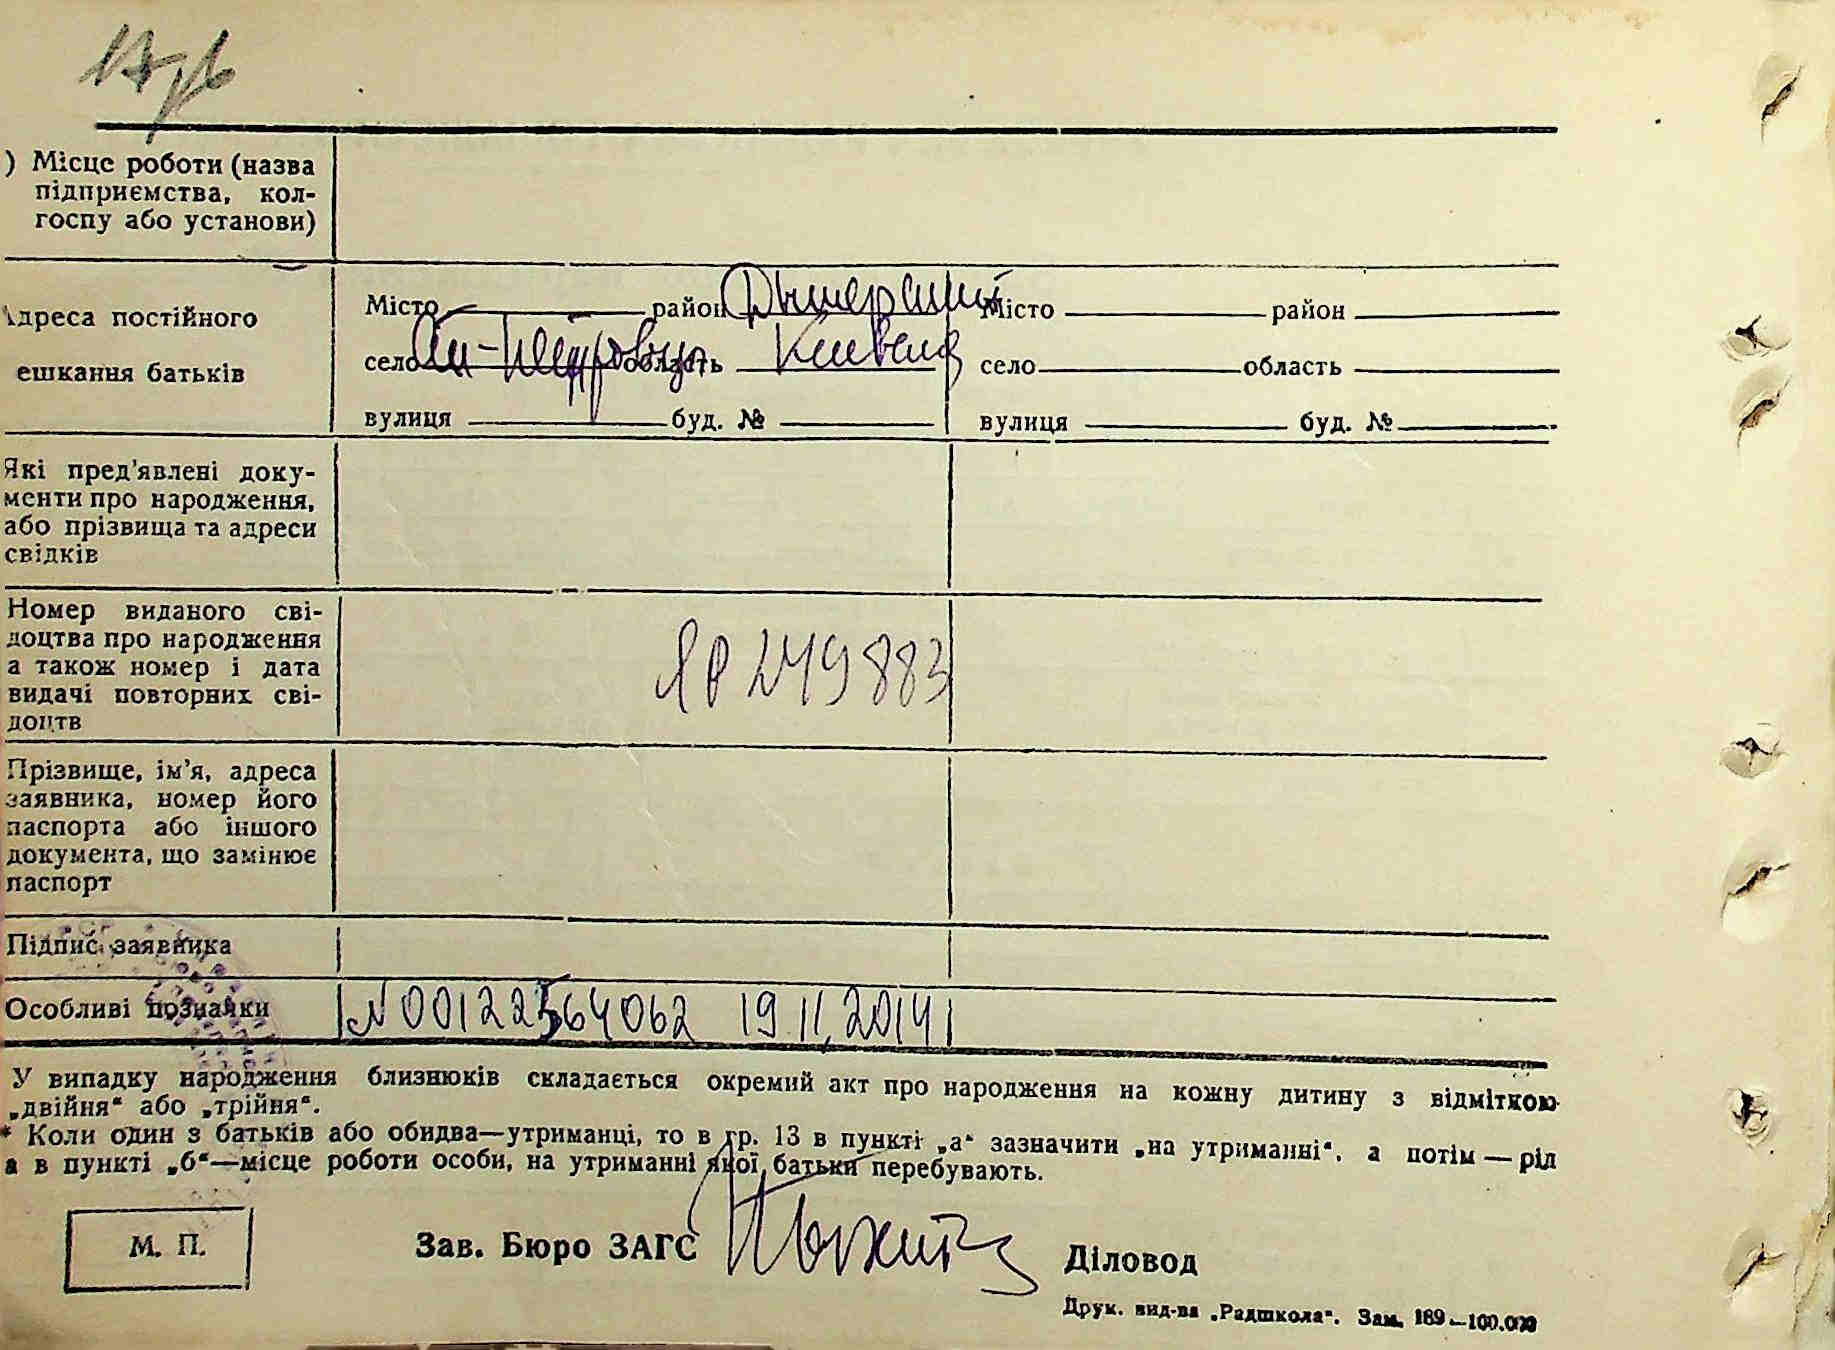 ) Місце роботи (назва
підприємства, кол-
госпу або установи)
Адреса постійного
ешкання батьків
Місто район Дымерский Місто район
село область Киевская село область
вулиця буд. № вулиця буд. №
Які пред'явлені доку-
менти про народження,
або прізвища та адреси
свідків
Номер виданого сві-
доцтва про народження
а також номер і дата
видачі повторних сві-
доцтв
ЯР 249883
Прізвище, ім'я, адреса
заявника, номер його
паспорта або іншого
документа, що замінює
паспорт
Підпис заявника
Особливі познаяки N 00122564062 19.11.2014
У випадку народження близнюків складається окремий акт про народження на кожну дитину з відміткою
„двійня“ або „трійня“.
* Коли один з батьків або обидва—утриманці, то в гр. 13 в пункті „а“ зазначити „на утриманні“, а потім — рід
а в пункті „б“—місце роботи особи, на утриманні якої батьки перебувають.
М. П.
Зав. Бюро ЗАГС
Діловод
Друк. вид-ва „Радшкола“. Зам. 189—100.000